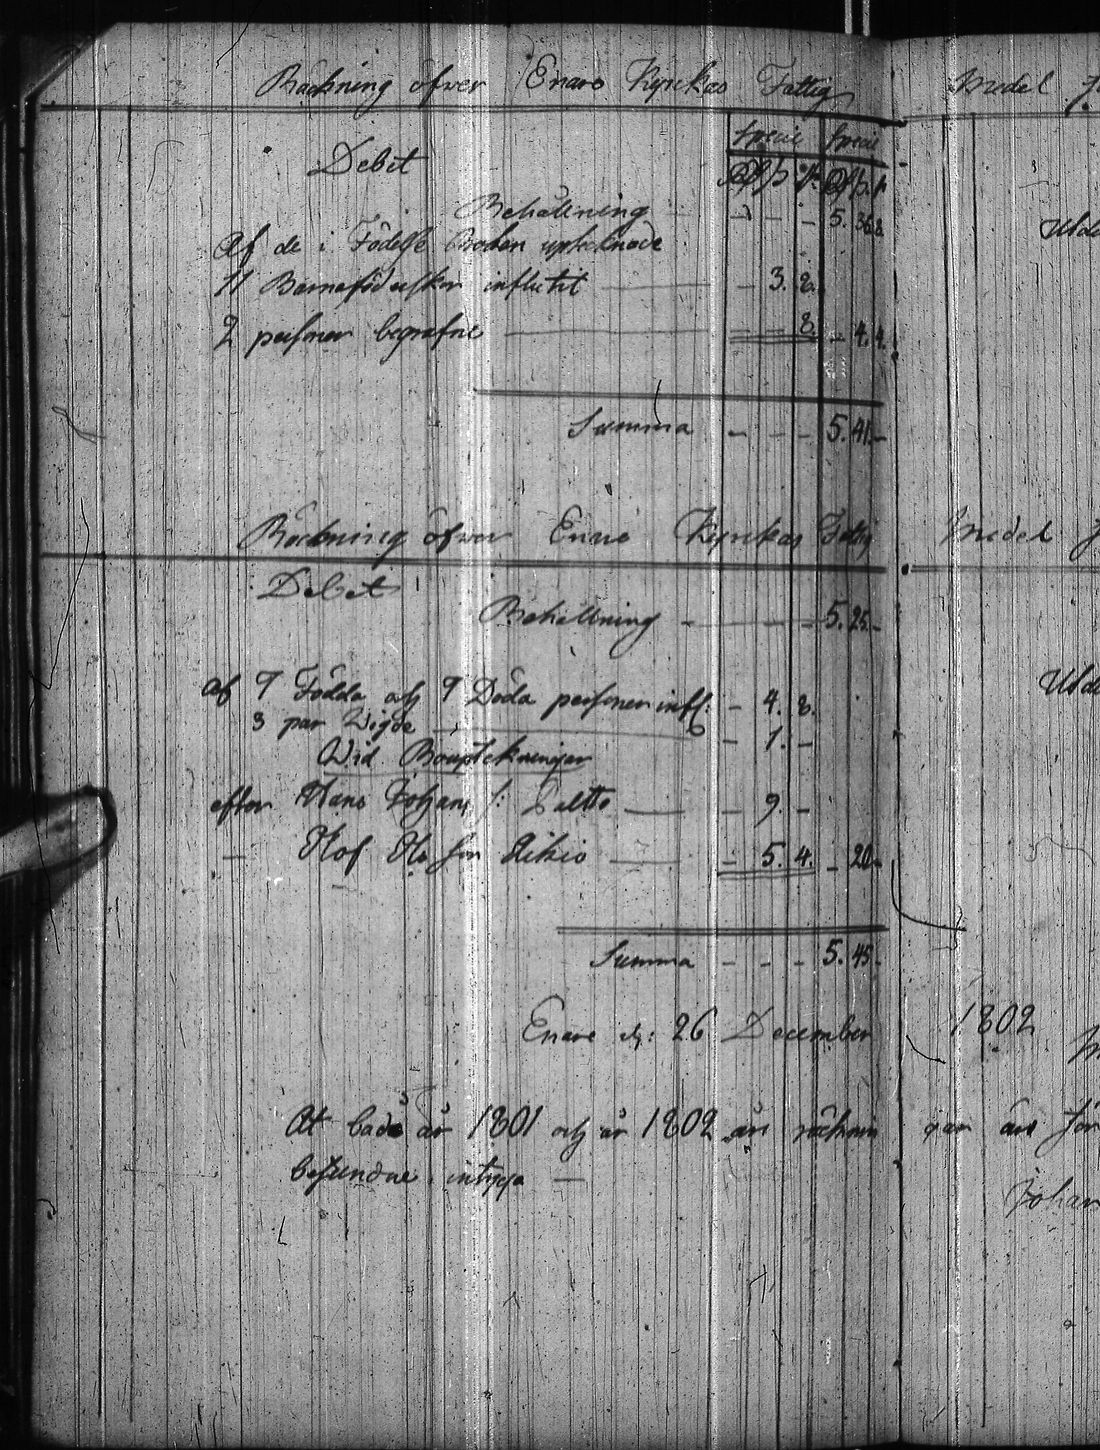 Räckning öfver Enare Kyrckas Fattig Medel
Debet
Specie Specie
Behållning - - - 5. 36.8
Af de i Födelse Boken uptecknade
11 Barnsföderskor influtit - 3. 8.
2 personer begrafne - - 8. - 4. 4.
Summa - - - 5. 41. -
Räckning öfver Enare Kyrckas Fattig Medel
Debet
Behållning - - - 5. 25. -
Af 9 Födda och 9 Döda personer infl: - 4. 8.
3 par Wigde - 1. -
Wid Bouptekningar
efter Hans Johans /: Saltto - 9. -
- Olof Ols son Aikio - 5. 4. - 20 -
Summa - - - 5. 45 -
Enare d: 26 December 1802
At både år 1801 och år 1802 års räkningar äro
befundne, intyga -
Johan